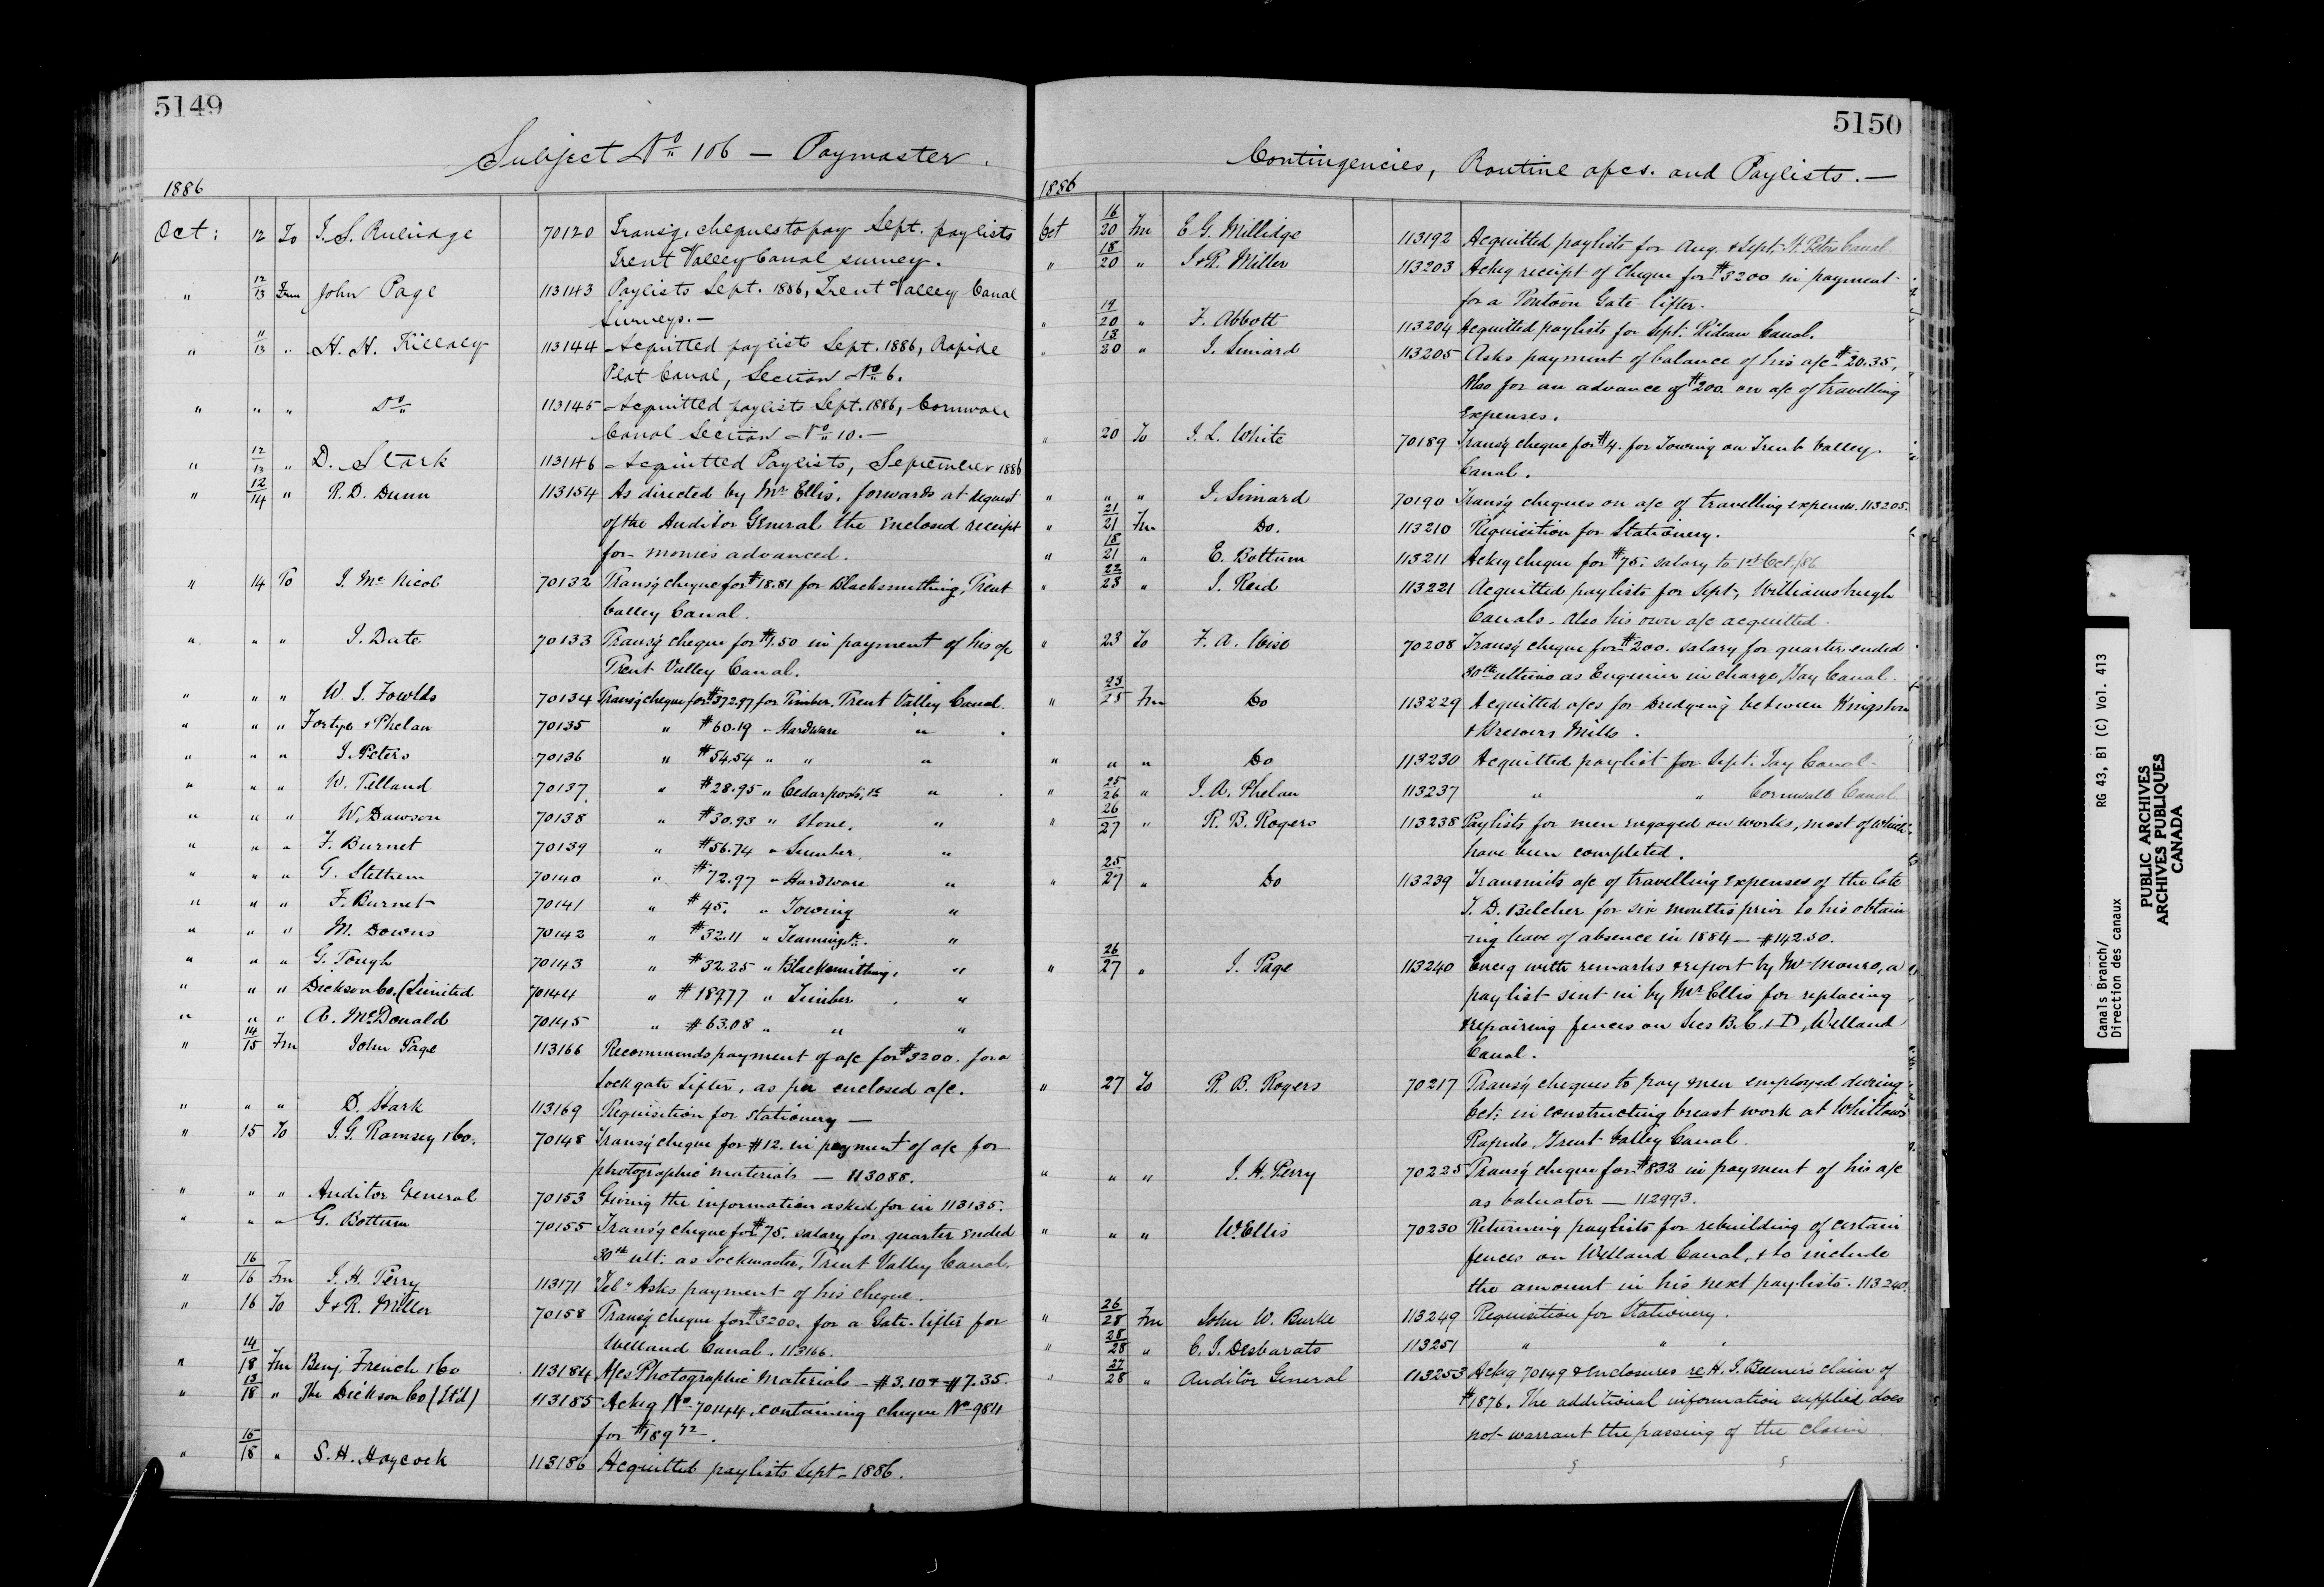 5149
Subject No 106 — Paymaster.
1886
Oct: 12 To J. S. 70120 Transg. cheques to pay Sept. paylists
Trent Valley Canal survey.
" 12/13 Frm John Page 113143 Paylists Sept. 1886, Trent Valley Canal
Surveys.—
" 11/13 " H. H. Killaly 113144 Acquitted paylists Sept. 1886, Rapide
Plat Canal, Section No 6.
" " " Do 113145 Acquitted paylists Sept. 1886, Cornwall
Canal Section No 10.—
" 12/13 " D. Stark 113146 Acquitted Paylists, September 1886
" 12/14 " R. D. Dunn 113154 As directed by Mr Ellis, forwards at request
of the Auditor General the enclosed receipt
for monies advanced.
" 14 To J. McNicol 70132 Transg cheque for $18.81 for Blacksmithing, Trent
Valley Canal.
" " " J. Date 70133 Transg cheque for $1.50 in payment of his a/c
Trent Valley Canal.
" " " W. J. Fowlds 70134 Transg cheque for $372.97 for Timber. Trent Valley Canal.
" " " Fortye & Phelan 70135 " $60.19 " Hardware "
" " " J. Peters 70136 " $54.54 " " "
" " " W. Telland 70137 " $28.95 " Cedar posts, &c "
" " " W. Dawson 70138 " $30.93 " Stone. "
" " " F. Burnet 70139 " $56.74 " Lumber. "
" " " G. Stethem 70140 " $72.97 " Hardware "
" " " F. Burnet 70141 " $45. " Towing "
" " " M. Downs 70142 " $32.11 " Teaming &c. "
" " " G. Tough 70143 " $32.25 " Blacksmithing. "
" " " Dickson Co. (Limited 70144 " $189.77 " Timber. "
" " " A. McDonald 70145 " $63.08 " " "
" 14/15 Frm John Page 113166 Recommends payment of a/c for $3200. for a
Lock gate Lifter, as per enclosed a/c.
" " " D. Stark 113169 Requisition for stationery —
" 15 To J. G. Ramsey & Co. 70148 Transg cheque for $12. in payment of a/c for
photographic materials — 113088.
" " " Auditor General 70153 Giving the information asked for in 113135.
" " " G. Bottum 70155 Transg cheque for $75. salary for quarter ended
30th ult: as Lockmaster, Trent Valley Canal.
" 16/16 Frm J. H. Perry 113171 "Tel" Asks payment of his cheque.
" 16 To J & R. Miller 70158 Transg cheque for $3200. for a Gate-lifter for
Welland Canal. 113166.
" 14/18 Frm Benj. French & Co 113184 A/cs Photographic Materials — $3.10 & $7.35.
" 13/18 " The Dickson Co (Lt'd) 113185 Ackg No 70144, containing cheque No 984
for $189 72.
" 15/18 " S. H. Haycock 113186 Acquitted paylists Sept. 1886.
5150
Contingencies, Routine a/cs. and Paylists.—
1886
Oct 16/20 Frm E G. Millidge 113192 Acquitted paylists for Aug. & Sept. St. Peters Canal.
" 18/20 " J & R. Miller 113203 Ackg receipt of cheque for $3200 in payment
for a Pontoon Gate-lifter.
" 19/20 " F. Abbott 113204 Acquitted paylists for Sept. Rideau Canal.
" 13/20 " J. Simard 113205 Asks payment of balance of his a/c $20.35,
Also for an advance of $200. on a/c of travelling
Expenses.
" 20 To J. L. White 70189 Transg cheque for $4. for Towing on Trent Valley
Canal.
" " " J. Simard 70190 Transg cheques on a/c of travelling expenses. 113205.
" 21/21 Frm Do. 113210 Requisition for Stationery.
" 18/21 " E. Bottum 113211 Ackg cheque for $75. salary to 1st Oct./86
" 22/23 " J. Reid 113221 Acquitted paylists for Sept, Williamsburgh
Canals. Also his own a/c acquitted.
" 23 To F. A. Wise 70208 Transg cheque for $200. salary for quarter ended
30th ultimo as Engineer in charge, Tay Canal.
" 23/25 Frm Do 113229 Acquitted a/cs for Dredging between Kingston
& Brewers Mills.
" " " Do 113230 Acquitted paylist for Sept. Tay Canal.
" 25/26 " J. A. Phelan 113237 " " Cornwall Canal
" 26/27 " R. B. Rogers 113238 Paylists for men engaged on works, most of which
have been completed.
" 25/27 " Do 113239 Transmits a/c of travelling expenses of the late
T. D. Belcher for six months prior to his obtain
ing leave of absence in 1884 — $142.50.
" 26/27 " J. Page 113240 Encg with remarks & report by Mr Monro, a
paylist sent in by Mr Ellis for replacing
& repairing fences on Secs B. C. & D, Welland
Canal.
" 27 To R. B. Rogers 70217 Transg cheques to pay men employed during
Oct: in constructing breast work at Whitlaw's
Rapids, Trent Valley Canal.
" " " J. H. Perry 70225 Transg cheque for $832 in payment of his a/c
as Valuator — 112993.
" " " W. Ellis 70230 Returning paylists for rebuilding of certain
fences on Welland Canal, & to include
the amount in his next paylists. 113240.
" 26/28 Frm John W. Burke 113249 Requisition for Stationery.
" 28/28 " C. J. Desbarats 113251 " " "
" 27/28 " Auditor General 113253 Ackg 70149 & enclosures re H. J. Beemer's claim of
$1876. The additional information supplied does
not warrant the passing of the claim
Canals Branch/ RG 43, B1 (C) Vol. 413
Direction des canaux
PUBLIC ARCHIVES
ARCHIVES PUBLIQUES
CANADA